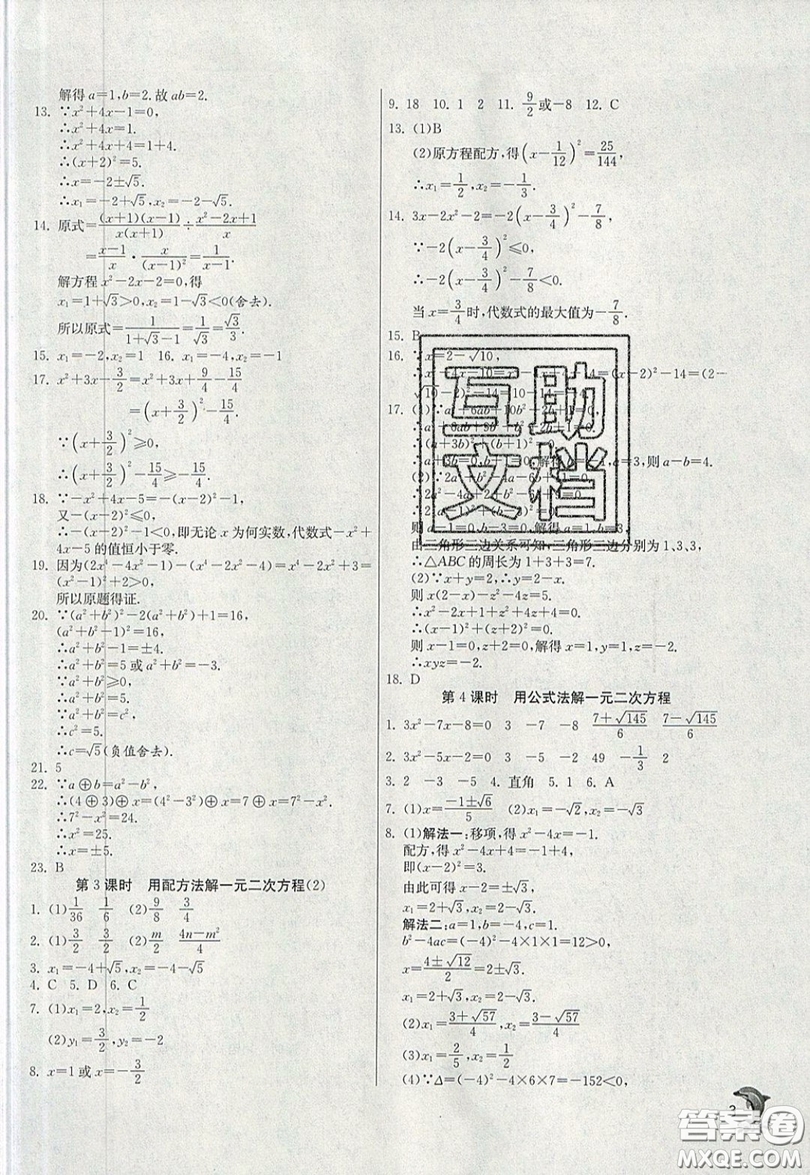 解得a=1,b=2.故ab=2.
13. ∵x²+4x-1=0,
∴x²+4x=1.
∴x²+4x+4=1+4.
∴(x+2)²=5.
∴x=-2±√5.
∴x₁=-2+√5,x₂=-2-√5.
14. 原式=(x+1)(x-1)/x(x+1)÷(x²-2x+1)/x
=(x-1)/x·x/(x-1)²=1/(x-1).
解方程x²-2x-2=0,得
x₁=1+√3>0,x₂=1-√3<0(舍去).
所以原式=1/(1+√3-1)=1/√3=√3/3.
15. x₁=-2,x₂=1 16. x₁=-4,x₂=-1
17. x²+3x-3/2=x²+3x+9/4-15/4
=(x+3/2)²-15/4.
∵(x+3/2)²≥0,
∴(x+3/2)²-15/4≥-15/4.
18. ∵-x²+4x-5=-(x-2)²-1,
又-(x-2)²≤0,
∴-(x-2)²-1<0,即无论x为何实数,代数式-x²+
4x-5的值恒小于零.
19. 因为(2x⁴-4x²-1)-(x⁴-2x²-3)=x⁴-2x²+3=
(x²-1)²+2>0,
所以原题得证.
20. ∵(a²+b²)²-2(a²+b²)+1=16,
(a²+b²-1)²=16,
∴a²+b²-1=±4.
∴a²+b²=5或a²+b²=-3.
∵a²+b²≥0,
∴a²+b²=5.
∵a²+b²=c²,
∴c²=5.
∴c=√5(负值舍去).
21. 5
22. ∵a⊕b=a²-b²,
∴(4⊕3)⊕x=(4²-3²)⊕x=7⊕x=7²-x².
∴7²-x²=24.
∴x²=25.
∴x=±5.
23. B
第3课时 用配方法解一元二次方程(2)
1. (1)1/36 1/6 (2)9/8 3/4
2. (1)3/2 3/2 (2)m/2 (4n-m²)/4
3. x₁=-4+√5,x₂=-4-√5
4. C 5. D 6. C
7. (1)x₁=2,x₂=1/2
(2)y₁=3/2,y₂=-2
8. x=1或x=-3/2
9. 18 10. 1 2 11. 9/2或-8 12. C
13. (1)B
(2)原方程配方,得(x-1/12)²=25/144,
∴x₁=1/2,x₂=-1/3.
14. 3x-2x²-2=-2(x-3/4)²-7/8,
∵-2(x-3/4)²≤0,
∴-2(x-3/4)²-7/8<0.
当x=3/4时,代数式的最大值为-7/8.
15. B
16. ∵x=2-√10,∴x²-4x-10=(x-2)²-14=(2-
√10-2)²-14=10-14=-4.
17. (1)∵a²+6ab+10b²+2b+1=0,
∴a²+6ab+9b²+b²+2b+1=0.
∴(a+3b)²+(b+1)²=0.
b=-1,a=3,则a-b=4.
则a-1=0,b-3=0,解得a=1,b=3.
由三角形三边关系可知,三角形三边分别为1,3,3,
∴△ABC的周长为1+3+3=7.
(2)∵x+y=2,∴y=2-x.
则x(2-x)-z²-4z=5.
∴x²-2x+1+z²+4z+4=0.
∴(x-1)²+(z+2)²=0.
则x-1=0,z+2=0,解得x=1,y=1,z=-2.
∴xyz=-2.
18. D
第4课时 用公式法解一元二次方程
1. 3x²-7x-8=0 3 -7 -8 (7+√145)/6 (7-√145)/6
2. 3x²-5x-2=0 3 -5 -2 49 -1/3 2
3. 2 -3 -5 4. 直角 5. 1 6. A
7. (1)x=(-1±√6)/5 (2)x₁=-√2,x₂=-√3
8. (1)解法一:移项,得x²-4x=-1.
配方,得x²-4x+4=-1+4,
即(x-2)²=3.
由此可得x-2=±√3.
x₁=2+√3,x₂=2-√3.
解法二:a=1,b=-4,c=1.
b²-4ac=(-4)²-4×1×1=12>0,
x=(4±√12)/2=2±√3.
x₁=2+√3,x₂=2-√3.
(2)x₁=(3+√57)/4,x₂=(3-√57)/4
(3)x₁=2/5,x₂=1/2
(4)∵Δ=(-4)²-4×6×7=-152<0,
3
互助
文档
答案卷
MXQE.COM